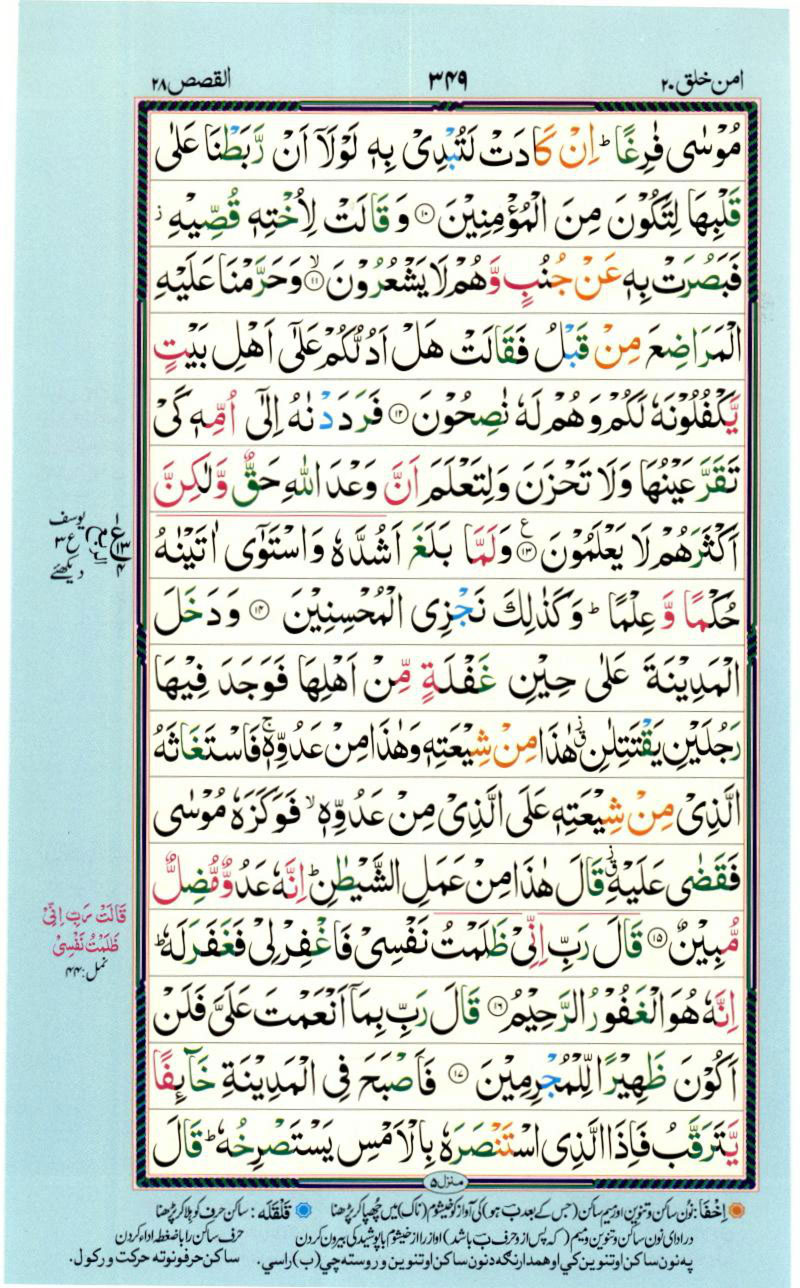 امن خلق ۲۰
۳۴۹
القصص ۲۸
مُوْسٰى فٰرِغًا ؕ اِنْ كَادَتْ لَتُبْدِىْ بِهٖ لَوْلَاۤ اَنْ رَّبَطْنَا عَلٰى
قَلْبِهَا لِتَكُوْنَ مِنَ الْمُؤْمِنِيْنَ ۱۰ وَ قَالَتْ لِاُخْتِهٖ قُصِّيْهِ ز
فَبَصُرَتْ بِهٖ عَنْ جُنُبٍ وَّ هُمْ لَا يَشْعُرُوْنَ ۙ ۱۱ وَ حَرَّمْنَا عَلَيْهِ
الْمَرَاضِعَ مِنْ قَبْلُ فَقَالَتْ هَلْ اَدُلُّكُمْ عَلٰۤى اَهْلِ بَيْتٍ
يَّكْفُلُوْنَهٗ لَكُمْ وَ هُمْ لَهٗ نٰصِحُوْنَ ۱۲ فَرَدَدْنٰهُ اِلٰۤى اُمِّهٖ كَىْ
تَقَرَّ عَيْنُهَا وَلَا تَحْزَنَ وَلِتَعْلَمَ اَنَّ وَعْدَ اللّٰهِ حَقٌّ وَّلٰكِنَّ
اَكْثَرَهُمْ لَا يَعْلَمُوْنَ ۱۳ ع وَلَمَّا بَلَغَ اَشُدَّهٗ وَاسْتَوٰٓى اٰتَيْنٰهُ
حُكْمًا وَّ عِلْمًا ؕ وَكَذٰلِكَ نَجْزِى الْمُحْسِنِيْنَ ۱۴ وَ دَخَلَ
الْمَدِيْنَةَ عَلٰى حِيْنِ غَفْلَةٍ مِّنْ اَهْلِهَا فَوَجَدَ فِيْهَا
رَجُلَيْنِ يَقْتَتِلٰنِ هٰذَا مِنْ شِيْعَتِهٖ وَهٰذَا مِنْ عَدُوِّهٖ ۚ فَاسْتَغَاثَهُ
الَّذِىْ مِنْ شِيْعَتِهٖ عَلَى الَّذِىْ مِنْ عَدُوِّهٖ ۙ فَوَكَزَهٗ مُوْسٰى
فَقَضٰى عَلَيْهِ قَالَ هٰذَا مِنْ عَمَلِ الشَّيْطٰنِ ؕ اِنَّهٗ عَدُوٌّ مُّضِلٌّ
مُّبِيْنٌ ۱۵ قَالَ رَبِّ اِنِّىْ ظَلَمْتُ نَفْسِىْ فَاغْفِرْ لِىْ فَغَفَرَ لَهٗ ؕ
اِنَّهٗ هُوَ الْغَفُوْرُ الرَّحِيْمُ ۱۶ قَالَ رَبِّ بِمَاۤ اَنْعَمْتَ عَلَىَّ فَلَنْ
اَكُوْنَ ظَهِيْرًا لِّلْمُجْرِمِيْنَ ۱۷ فَاَصْبَحَ فِى الْمَدِيْنَةِ خَآئِفًا
يَّتَرَقَّبُ فَاِذَا الَّذِى اسْتَنْصَرَهٗ بِالْاَمْسِ يَسْتَصْرِخُهٗ ؕ قَالَ
یوسف
ع ۳
دیکھئے
۱
ع
۱۳
۴
قَالَتْ رَبِّ اِنِّىْ
ظَلَمْتُ نَفْسِىْ
نمل: ۴۴
منزل ۵
اِخْفَا: نون ساکن وتنوین اور میم ساکن (جس کے بعد ب ہو) کی آواز کو خیشوم (ناک) میں چھپا کر پڑھنا
قَلْقَلَه: ساکن حرف کو ہلا کر پڑھنا
در ادای نون ساکن وتنوین ومیم (که پس از و حرف ب باشد) اواز را از خیشوم با پوشیدگی بیرون کردن
حرف ساکن را با ضغطه اداء کردن
په نون ساکن او تنوین کي او همدارنګه د نون ساکن او تنوین و روسته چي (ب) راسي.
ساکن حرفونو ته حرکت ورکول.